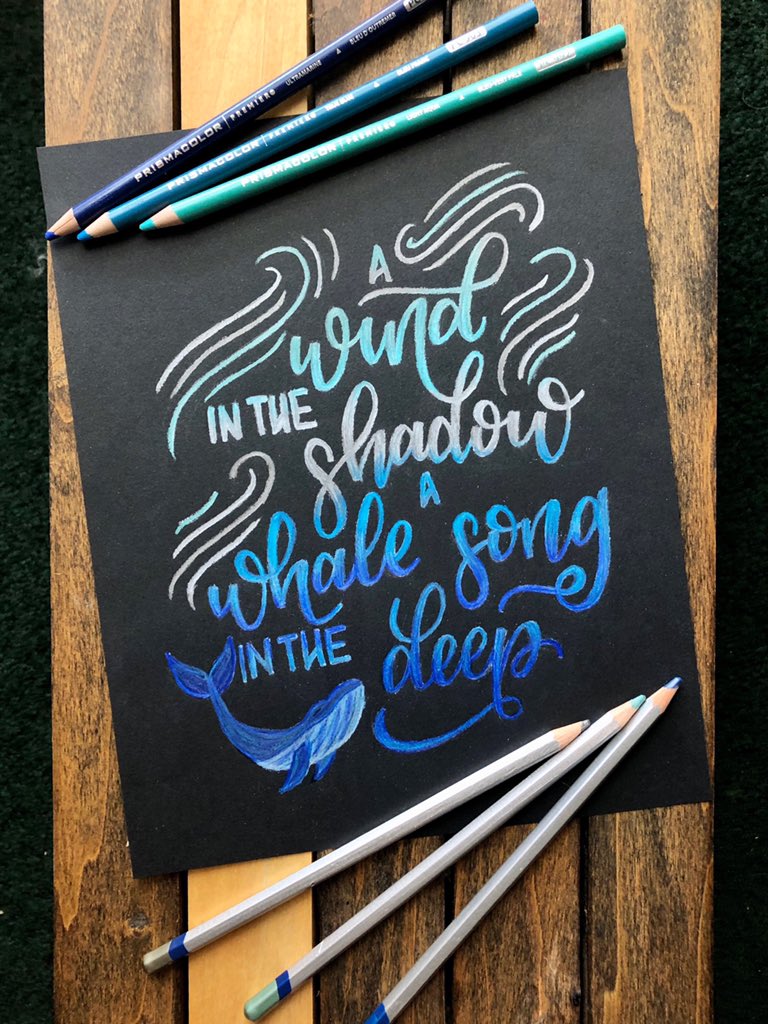 ULTRAMARINE ▲ BLEU D'OUTREMER
PRISMACOLOR | PREMIER®
PRISMACOLOR | PREMIER®
PRISMACOLOR | PREMIER®
A
wind
IN THE
shadow
A
whale song
IN THE
deep